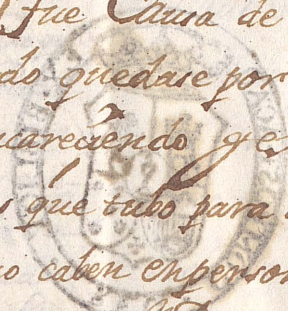 fue Causa de
do quedase por
ncareciendo y e
que tubo para
no caben enperson